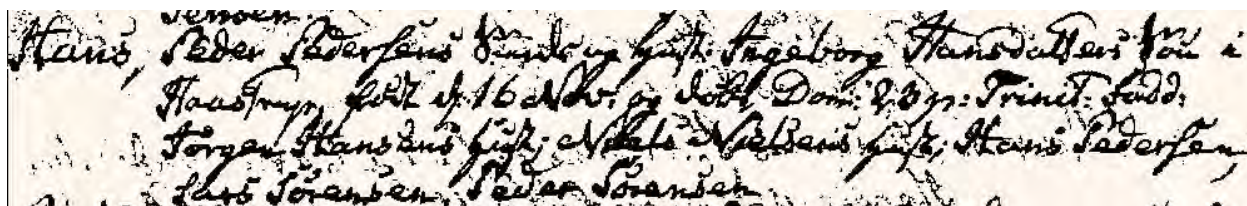 Jensen.
Hans, Peder Pedersens Smeds og Hust: Ingeborg Hansdatters Søn i
Haastrup, født d. 16 Nov: og døbt Dom: 23 p: Trinit: Fadd:
Jørgen Hansens Hust; Niels Nielsens Hust; Hans Pedersen,
Lars Sørensen, Peder Sørensen.